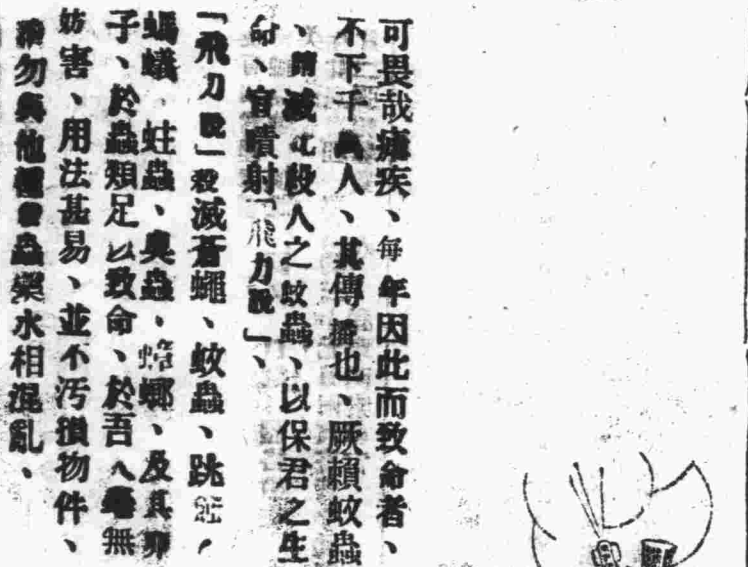 可畏哉瘧疾、每年因此而致命者、
不下千萬人、其傳播也、厥賴蚊蟲
、請滅此殺人之蚊蟲、以保君之生
命、宜噴射「飛力脫」、
「飛力脫」殺滅蒼蠅、蚊蟲、跳蚤、
螞蟻、蛀蟲、臭蟲、蟑螂、及其卵
子、於蟲類足以致命、於吾人毫無
妨害、用法甚易、並不污損物件、
勿與他種蟲藥水相混亂、